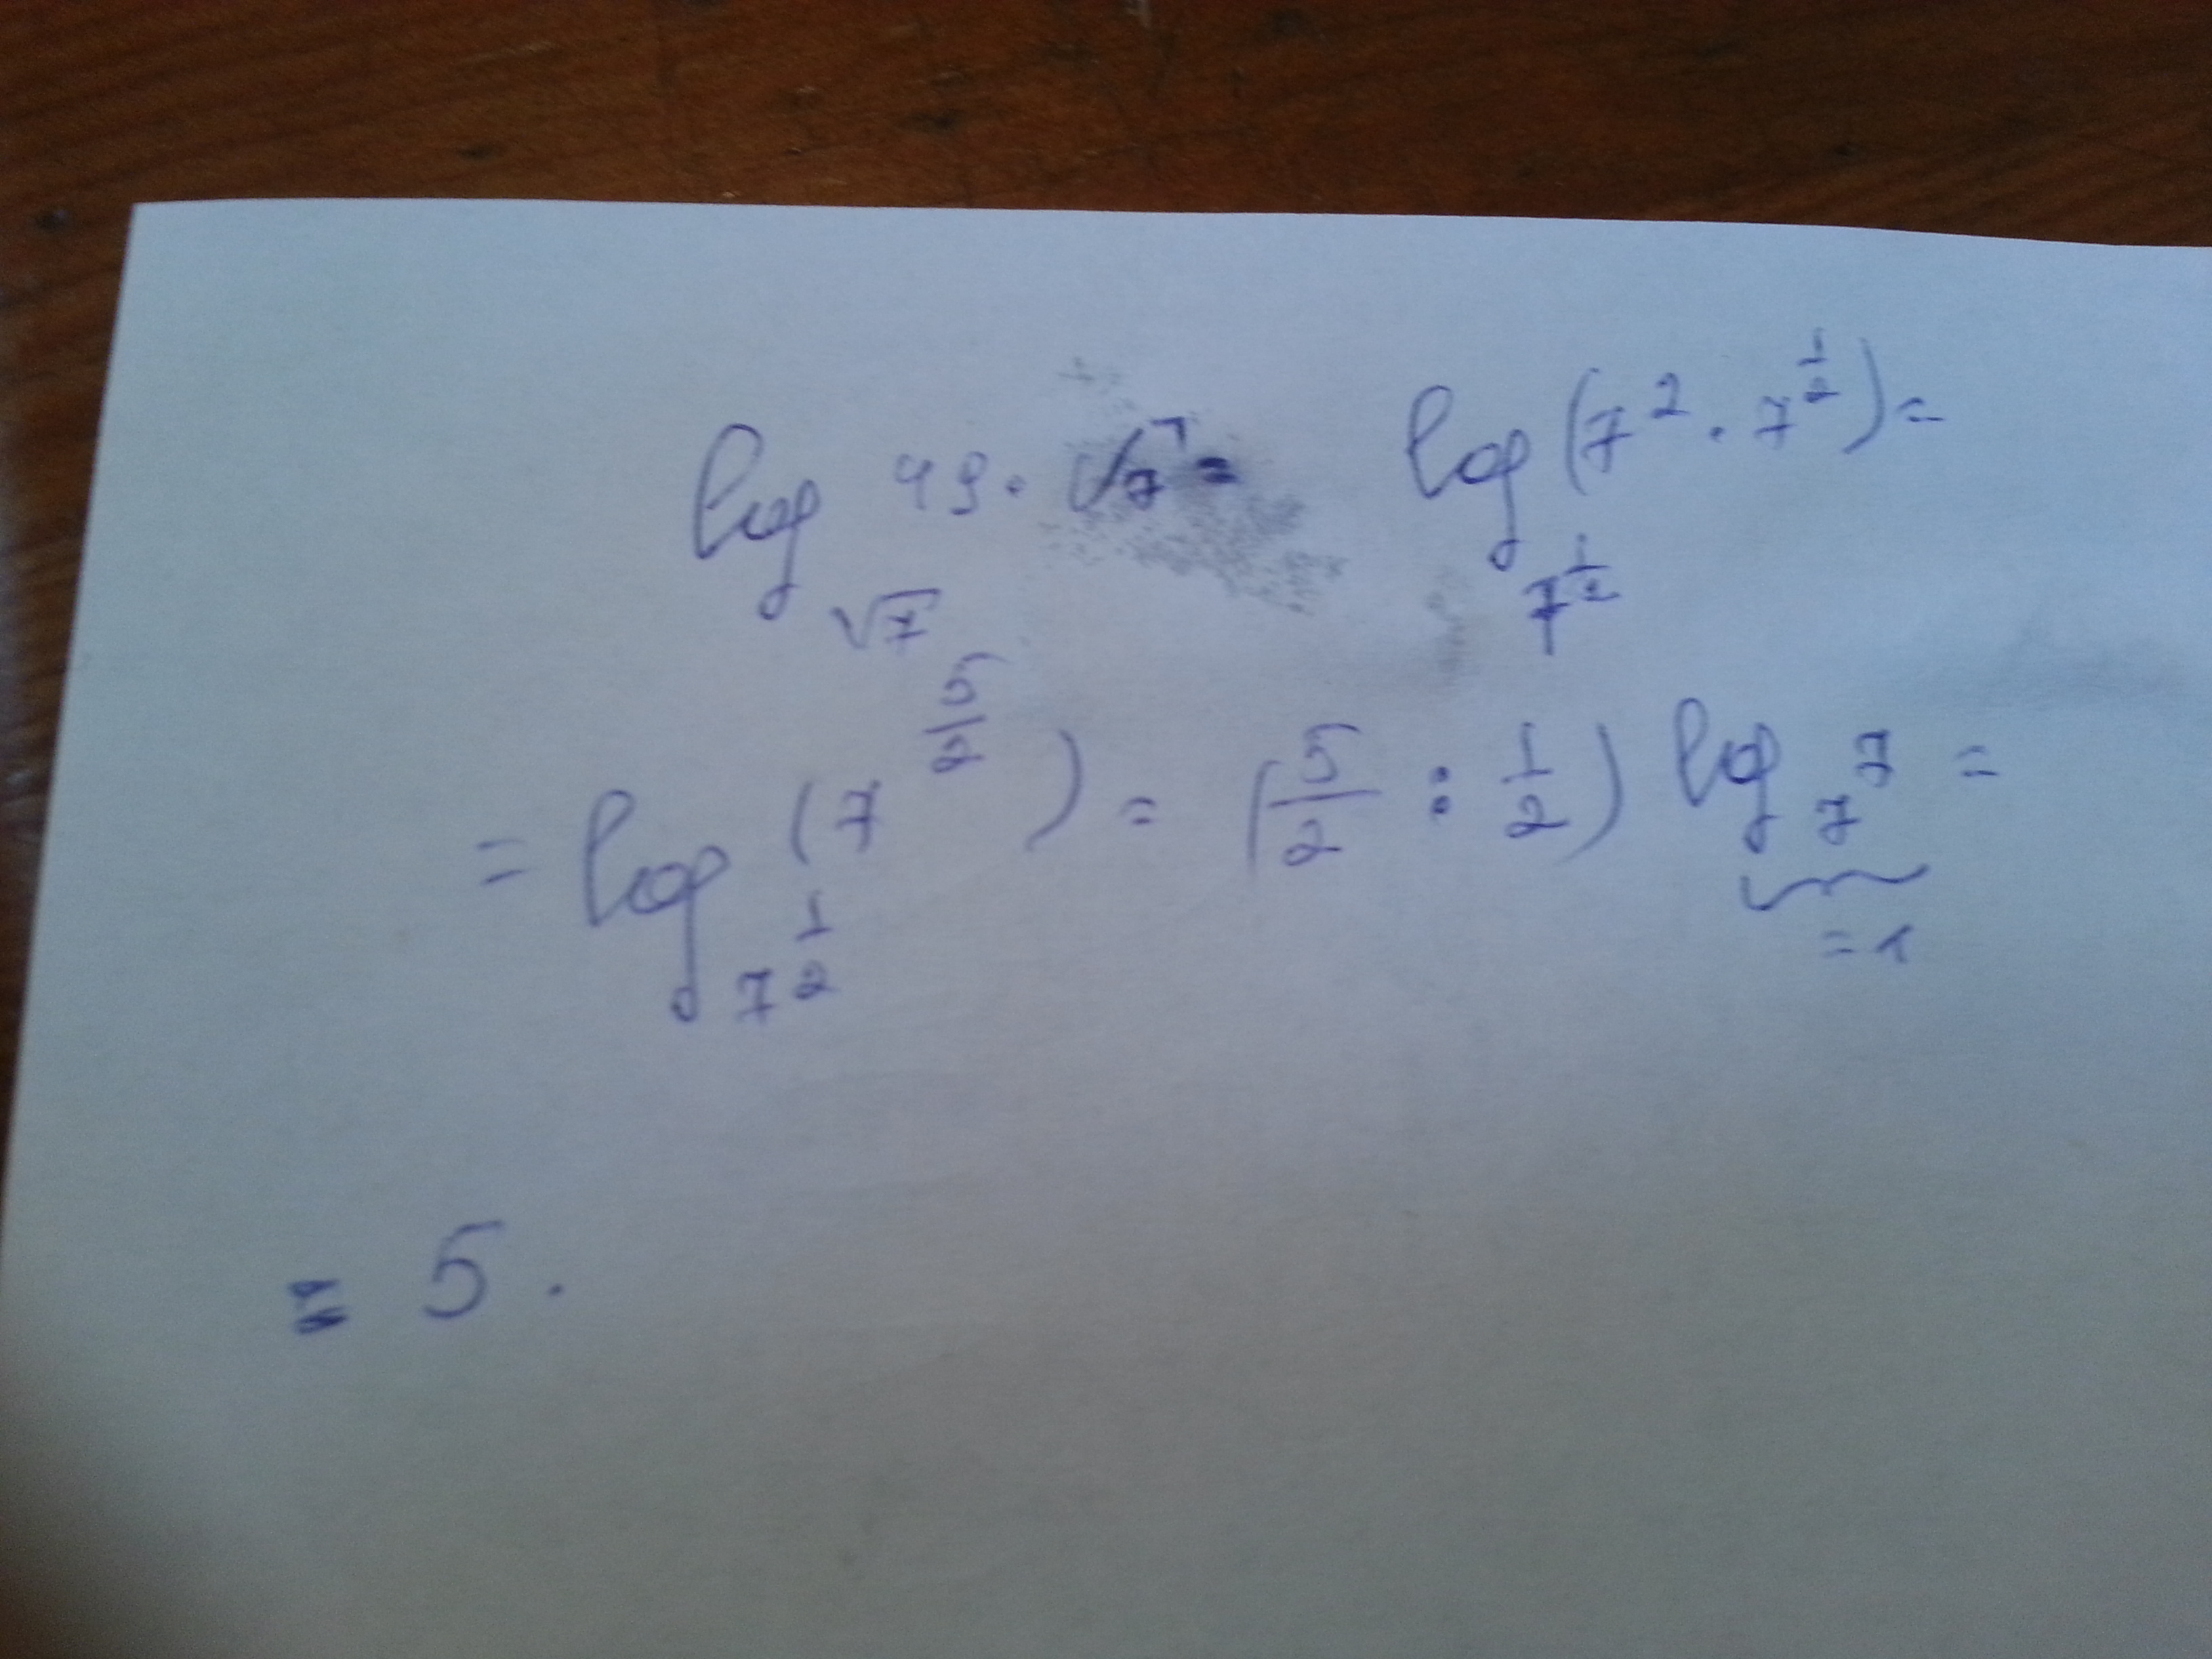 log_{√7} 49 · √7 = log_{7^{1/2}} (7^2 · 7^{1/2}) =
= log_{7^{1/2}} (7^{5/2}) = (5/2 : 1/2) log_7 7 =
= 1
= 5.